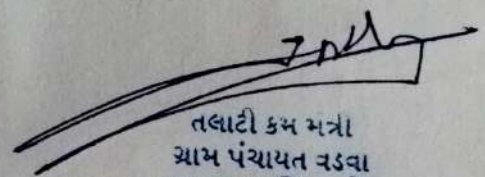 તલાટી કમ મંત્રી
ગ્રામ પંચાયત વડવા